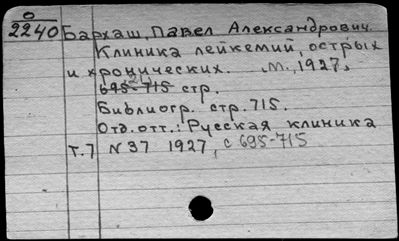 0
2240
Бархаш, Павел Александрович
Клиника лейкемий, острых
и хронических. М., 1927,
21
695-715 стр.
Библиогр. стр. 715.
Отд. отт.: Русская клиника
т. 7 № 37 1927, с 695-715